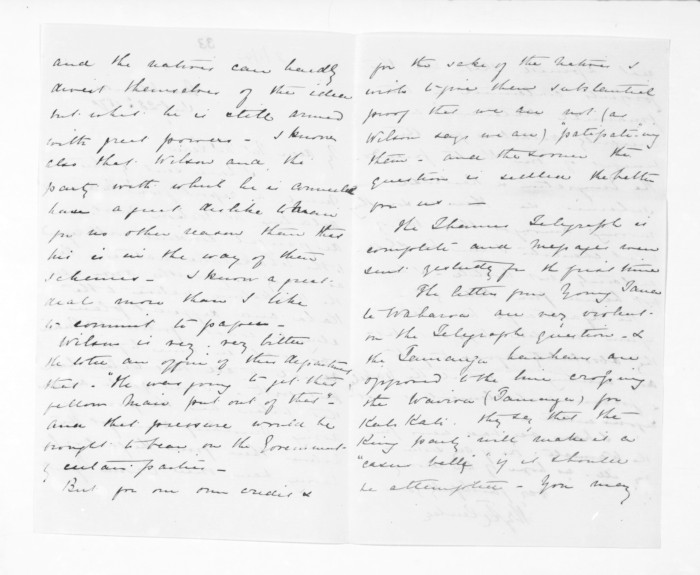 33
and the natives can hardly
divest themselves of the idea
but what he is still armed
with great powers - I know
also that Wilson and the
party with which he is connected
have a great dislike to Main
for no other reason than that
he is in the way of their
schemes - I know a great
deal more than I like
to commit to paper -
Wilson is very very bitter
he told an officer of this department
that - "He was going to get that
fellow Main put out of that" -
and that pressure would be
brought to bear on the Government
by certain parties -
But for our own credit &
for the sake of the natives I
wish to give them substantial
proof that we are not (as
Wilson says we are) in
them - and the sooner the
question is settled the better
for us -
The Thames Telegraph is
complete and messages were
sent yesterday for the first time
The letters from Young Tana
te Waharoa are very violent
on the Telegraph question - &
the Tauranga hauhaus are
opposed to the line crossing
the Wairoa (Tauranga) for
Kati Kati. they say that the
King party will make it a
"casus belli" if it should
be attempted - You may